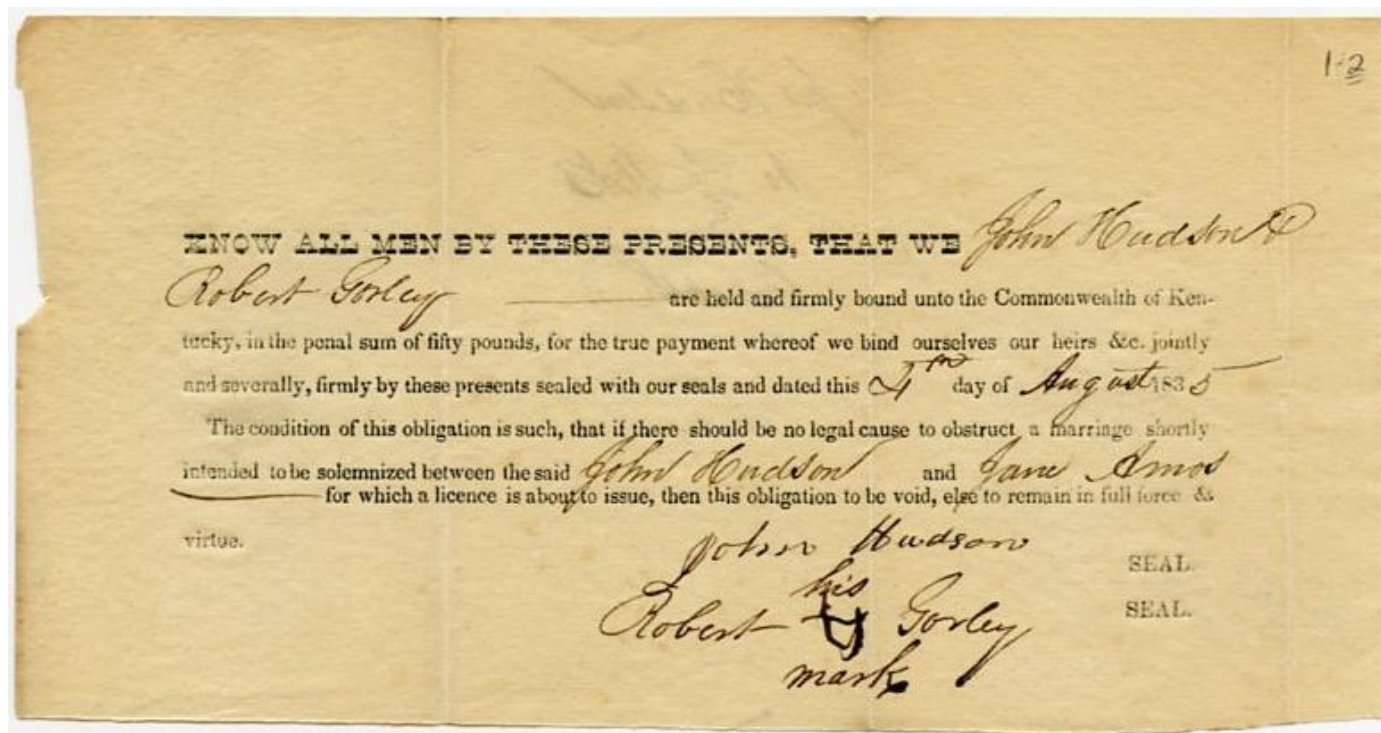 1-2
KNOW ALL MEN BY THESE PRESENTS, THAT WE John Hudson &
Robert Gorley are held and firmly bound unto the Commonwealth of Ken-
tucky, in the penal sum of fifty pounds, for the true payment whereof we bind ourselves our heirs &c. jointly
and severally, firmly by these presents sealed with our seals and dated this 4th day of August 1835
The condition of this obligation is such, that if there should be no legal cause to obstruct a marriage shortly
intended to be solemnized between the said John Hudson and Jane Amos
for which a licence is about to issue, then this obligation to be void, else to remain in full force &
virtue.
John Hudson SEAL.
his
Robert Gorley SEAL.
mark